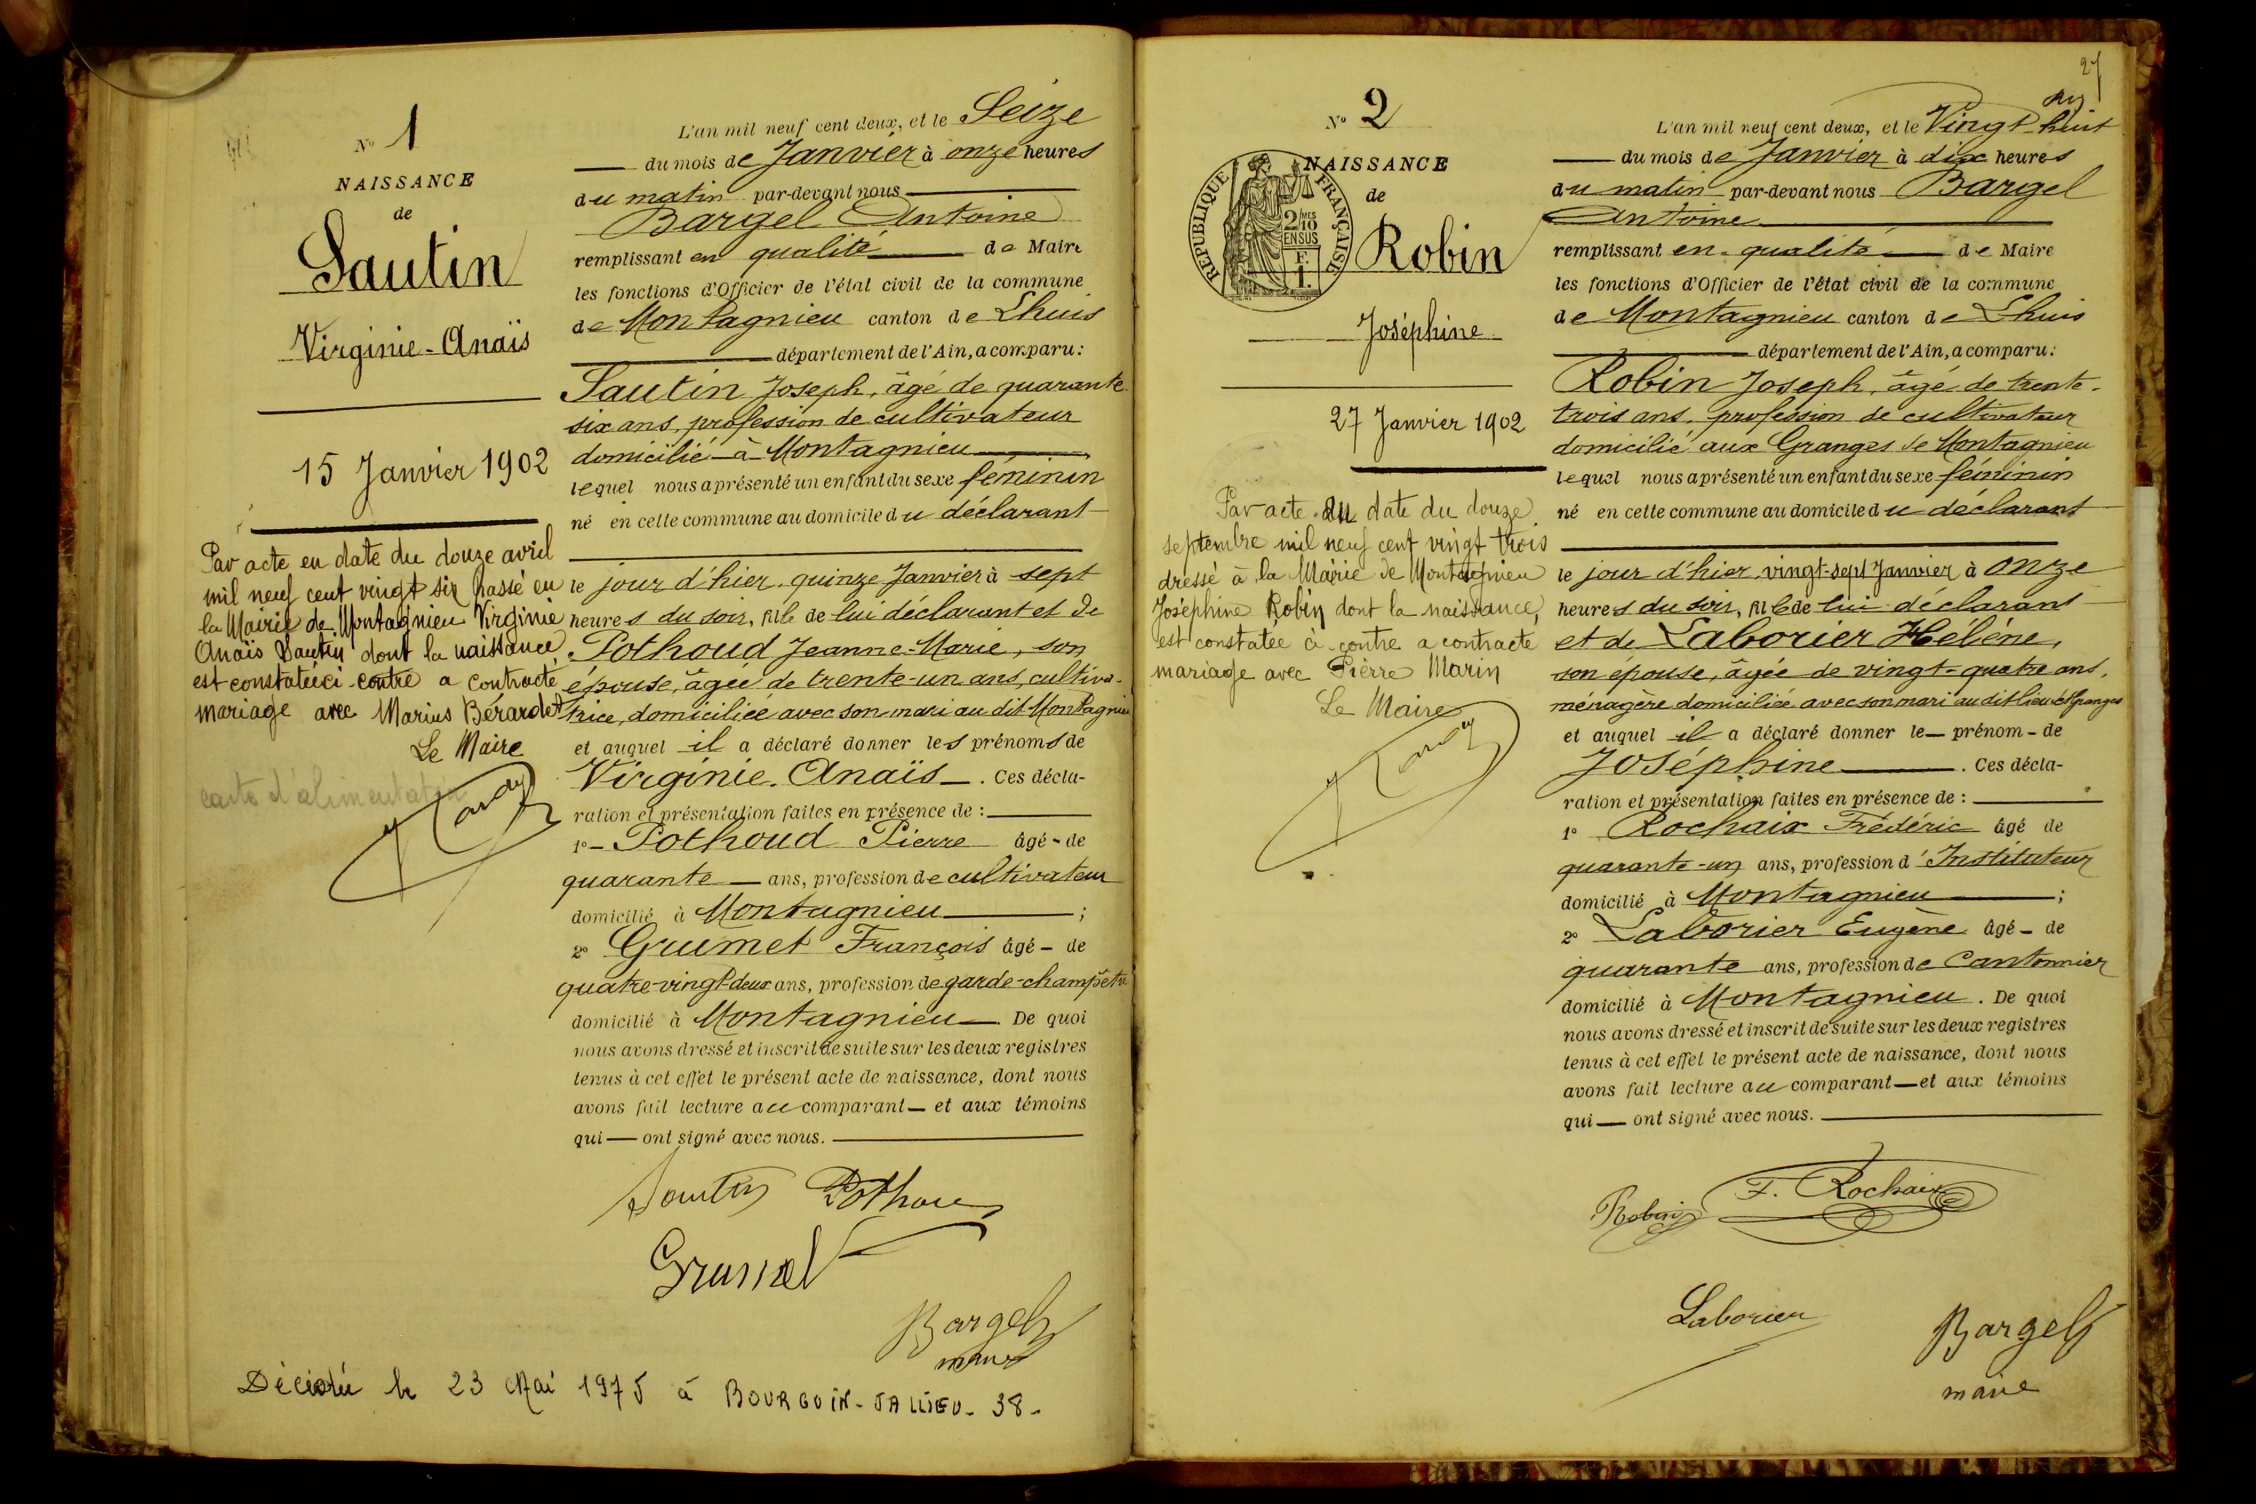 N° 1
NAISSANCE
de
Sautin
Virginie-Anaïs
15 Janvier 1902
Par acte en date du douze avril
mil neuf cent vingt six passé en
la Mairie de Montagnieu Virginie
Anaïs Sautin dont la naissance
est constatée ci-contre a contracté
mariage avec Marius Bérardet
Le Maire
carte d'alimentation
L'an mil neuf cent deux, et le Seize
du mois de Janvier à onze heures
du matin par-devant nous
Bargel Antoine
remplissant en qualité de Maire
les fonctions d'Officier de l'état civil de la commune
de Montagnieu canton de Lhuis
département de l'Ain, a comparu :
Sautin Joseph, âgé de quarante-
six ans, profession de cultivateur
domicilié à Montagnieu
lequel nous a présenté un enfant du sexe féminin
né en cette commune au domicile du déclarant
le jour d'hier, quinze Janvier à sept
heures du soir, fille de lui déclarant et de
Pothoud Jeanne-Marie, son
épouse, âgée de trente-un ans, cultiva-
trice, domiciliée avec son mari au dit Montagnieu
et auquel il a déclaré donner les prénoms de
Virginie-Anaïs. Ces décla-
ration et présentation faites en présence de :
1° Pothoud Pierre âgé de
quarante ans, profession de cultivateur
domicilié à Montagnieu ;
2° Grumet François âgé de
quatre-vingt-deux ans, profession de garde-champêtre
domicilié à Montagnieu De quoi
nous avons dressé et inscrit de suite sur les deux registres
tenus à cet effet le présent acte de naissance, dont nous
avons fait lecture au comparant et aux témoins
qui ont signé avec nous.
Sautin Pothoud
Grumet
Bargel
maire
Décédée le 23 Mai 1975 à BOURGOIN-JALLIEU-38-
27
N° 2
NAISSANCE
de
RÉPUBLIQUE FRANÇAISE
2/10 MES
EN SUS
F.
1.
Robin
Joséphine
27 Janvier 1902
Par acte en date du douze
septembre mil neuf cent vingt trois
dressé à la Mairie de Montagnieu
Joséphine Robin dont la naissance,
est constatée ci-contre a contracté
mariage avec Pierre Marin
Le Maire
L'an mil neuf cent deux, et le Vingt-huit
du mois de Janvier à dix heures
du matin par-devant nous Bargel
Antoine
remplissant en qualité de Maire
les fonctions d'Officier de l'état civil de la commune
de Montagnieu canton de Lhuis
département de l'Ain, a comparu :
Robin Joseph, âgé de trente-
trois ans, profession de cultivateur
domicilié aux Granges de Montagnieu
lequel nous a présenté un enfant du sexe féminin
né en cette commune au domicile du déclarant
le jour d'hier, vingt-sept Janvier à onze
heures du soir, fille de lui déclarant
et de Laborier Hélène,
son épouse, âgée de vingt-quatre ans,
ménagère domiciliée avec son mari au dit lieu des Granges
et auquel il a déclaré donner le prénom de
Joséphine. Ces décla-
ration et présentation faites en présence de :
1° Rochaix Frédéric âgé de
quarante-un ans, profession d'Instituteur
domicilié à Montagnieu ;
2° Laborier Eugène âgé de
quarante ans, profession de Cantonnier
domicilié à Montagnieu. De quoi
nous avons dressé et inscrit de suite sur les deux registres
tenus à cet effet le présent acte de naissance, dont nous
avons fait lecture au comparant et aux témoins
qui ont signé avec nous.
Robin F. Rochaix
Laborier
Bargel
maire